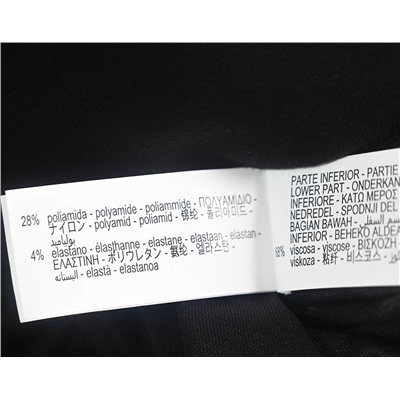 28% poliamida - polyamide - poliammide - ΠΟΛΥΑΜΙΔΙΟ -
ナイロン - polyamid - poliamid - 锦纶 - 폴리아미드 -
بولياميد
4% elastano - élasthanne - elastane - elastaan - elastan -
ΕΛΑΣΤΙΝΗ - ポリウレタン - 氨纶 - 엘라스탄 -
elastā - elastanoa - اليستانه
PARTE INFERIOR - PARTIE
LOWER PART - ONDERKAN
INFERIORE - ΚΑΤΩ ΜΕΡΟΣ
NEDREDEL - SPODNJI DEL
BAGIAN BAWAH - السفلي
INFERIOR - BEHEKO ALDEA
68% viscosa - viscose - ΒΙΣΚΟΖΗ -
viskoza - 粘纤 - 비스코스 -